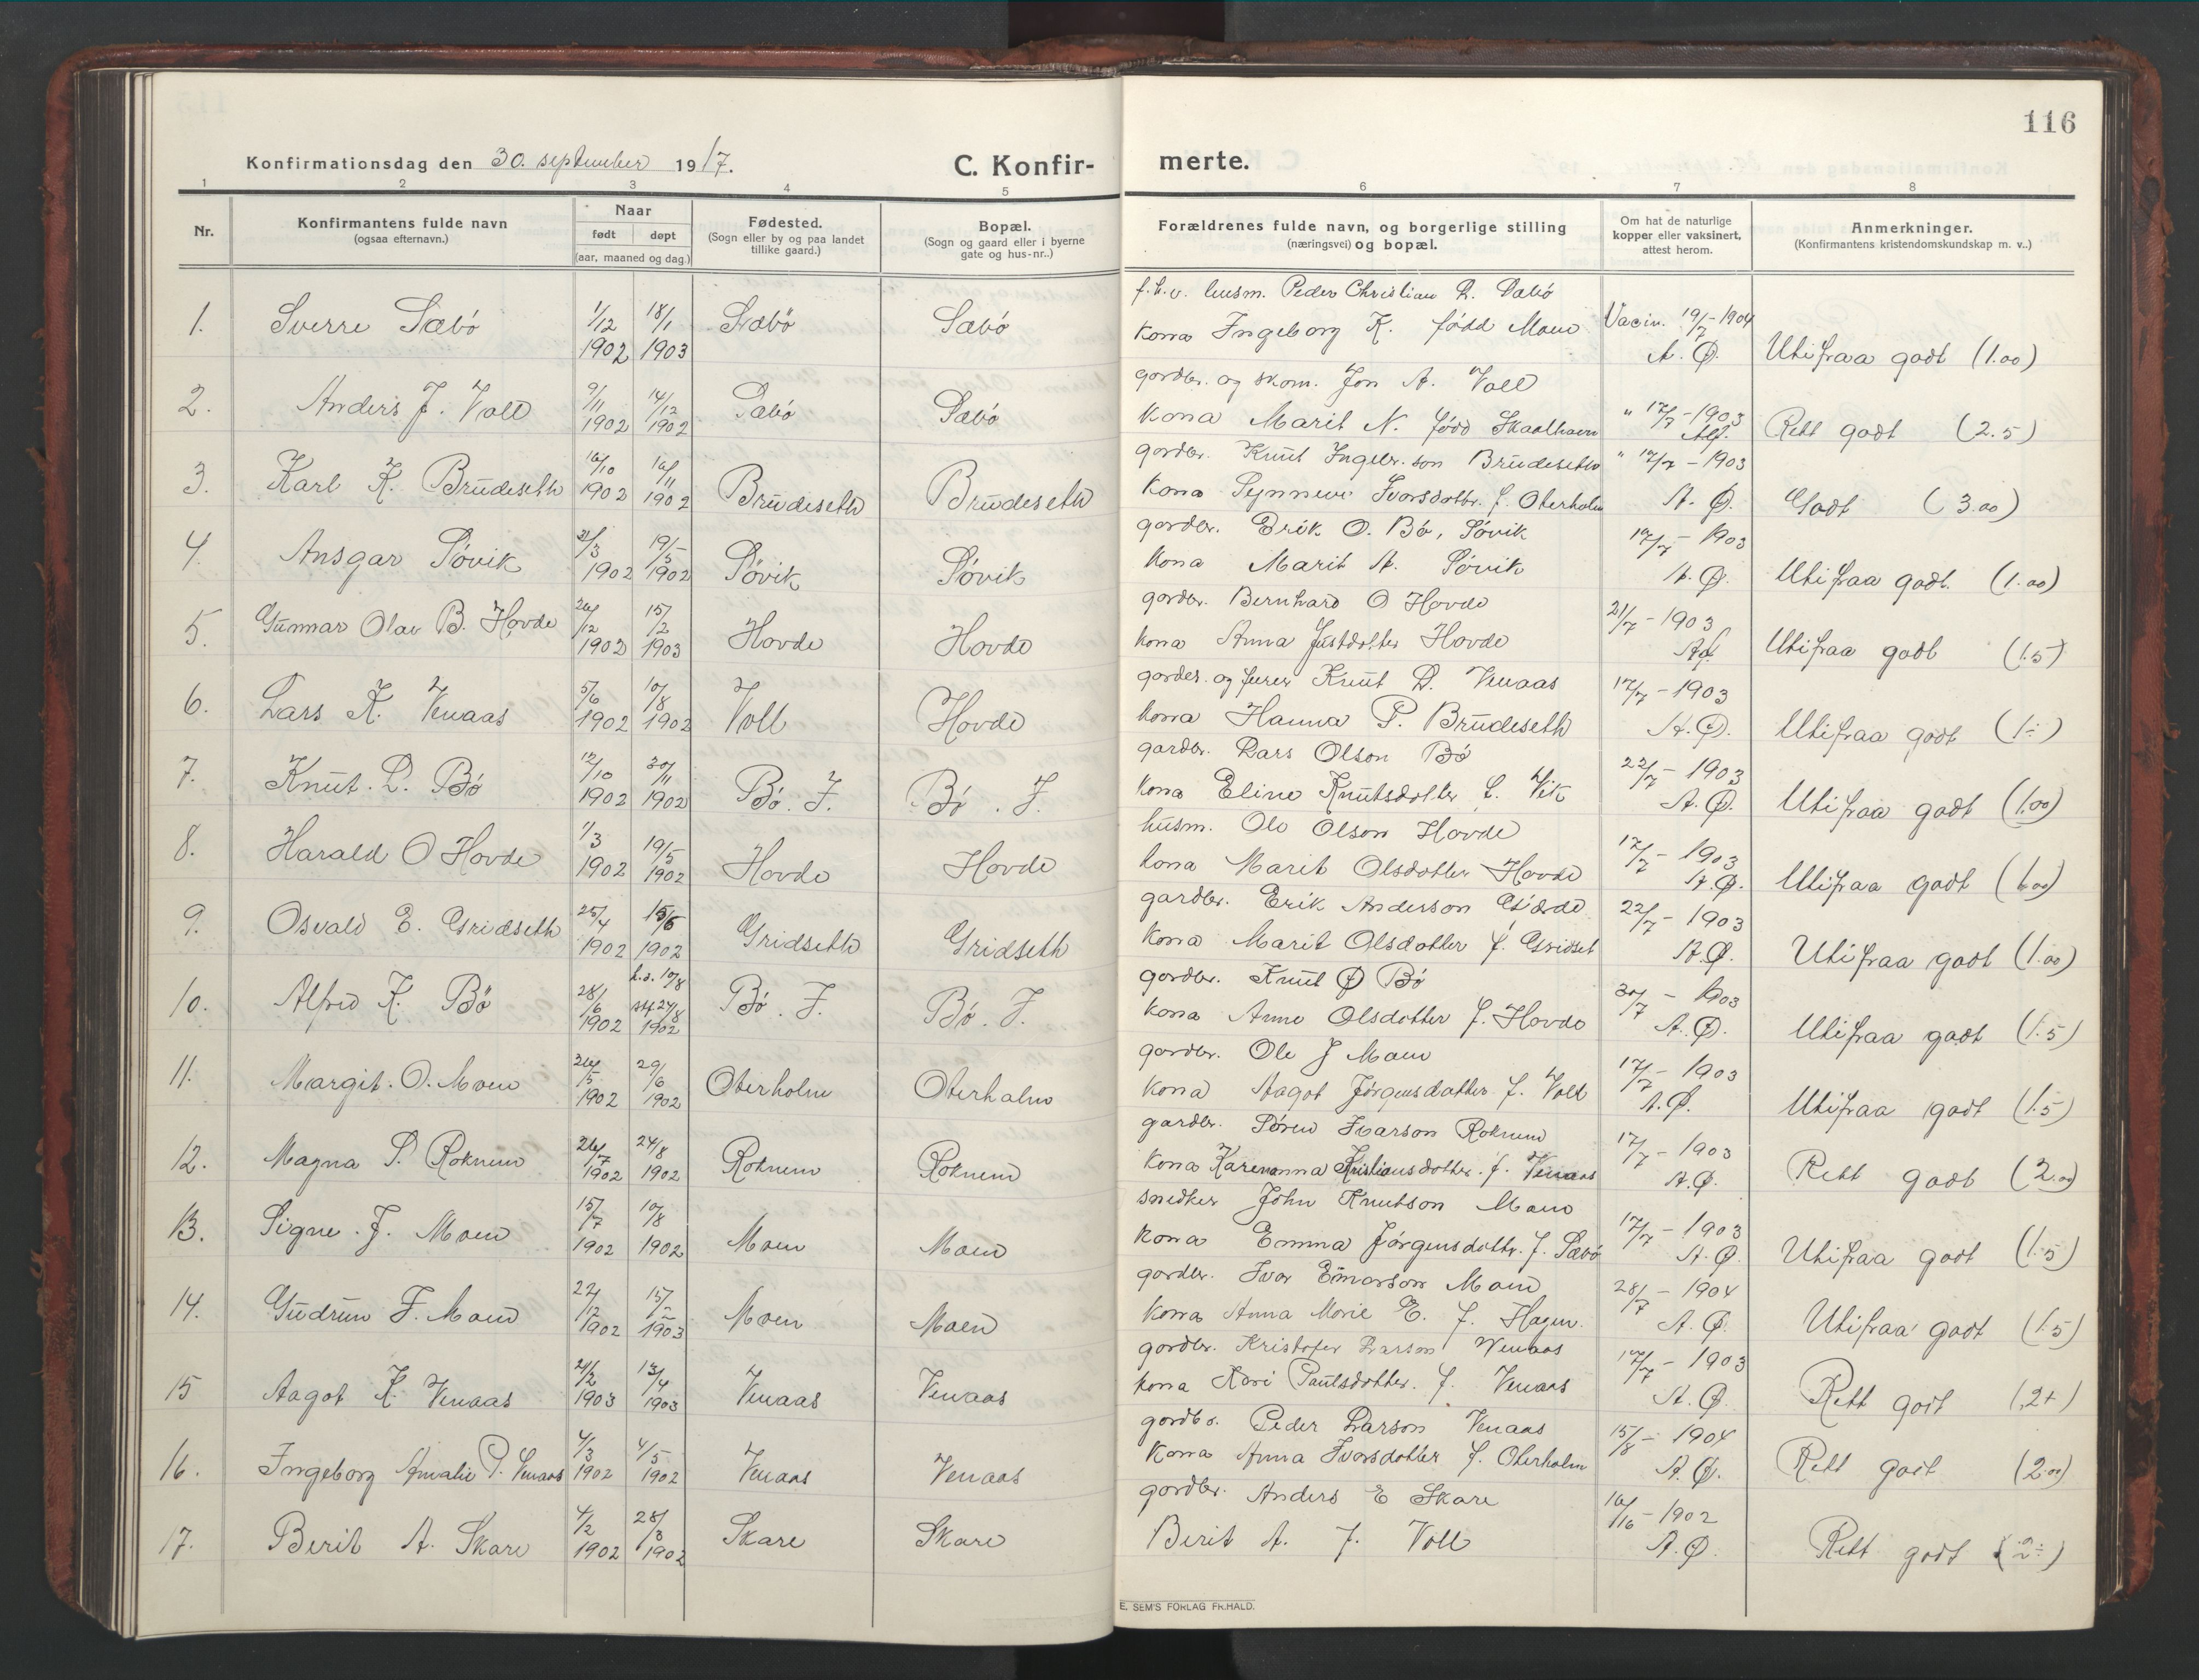 116
Konfirmationsdag den 30. september 1917. C. Konfir- merte.
1 2 3 4 5 6 7 8
Nr.
Konfirmantens fulde navn
(ogsaa efternavn.)
Naar
født døpt
(aar, maaned og dag.)
Fødested.
(Sogn eller by og paa landet
tillike gaard.)
Bopæl.
(Sogn og gaard eller i byerne
gate og hus-nr..)
Forældrenes fulde navn, og borgerlige stilling
(næringsvei) og bopæl.
Om hat de naturlige
kopper eller vaksinert,
attest herom.
Anmerkninger.
(Konfirmantens kristendomskundskap m. v..)
f.h.v. husm. Peder Christian L. Sæbö
1. Sverre Sæbö 1/12 1902 18/1 1903 Sæbö Sæbö kona Ingeborg K. född Moen Vacin. 19/7-1904
A. Ø. Utifraa godt (1.00)
gordbr. og skom. Jon A. Voll
2. Anders J. Voll 9/11 1902 14/12 1902 Sæbö Sæbö kona Marit N. född Skaalhavn " 17/7-1903 Rett godt (2.5)
gordbr. Knut Ingebr.son Brudeseth " 17/7-1903
3. Karl K. Brudeseth 16/10 1902 16/11 1902 Brudeseth Brudeseth kona Synneve Ivarsdottr. f. Oterholm A. Ø. Godt (3.00)
gordbr. Erik O. Bö, Sövik 17/7-1903
4. Ansgar Sövik 31/3 1902 19/5 1902 Sövik Sövik kona Marit A. Sövik A. Ø. Utifraa godt. (1.00)
gordbr. Bernhard O Hovde 21/7-1903
5. Gunnar Olav B. Hovde 26/12 1902 15/2 1903 Hovde Hovde kona Anna Justdotter Hovde Utifraa godt (1.5)
gordbr. og furer Knut D. Venaas 17/7-1903
6. Lars K. Venaas 5/6 1902 10/8 1902 Voll Hovde kona Hanna P. Brudeseth A. Ø. Utifraa godt (1÷)
gardbr. Lars Olson Bö 22/7-1903
7. Knut. L. Bö 12/10 1902 30/11 1902 Bö. I. Bö. I. kona Eline Knutsdotter f. Vik A. Ø. Utifraa godt (1.00)
husm. Ole Olson Hovde 17/7-1903
8. Harald O Hovde 1/3 1902 19/5 1902 Hovde Hovde kona Marit Olsdotter Hovde A. Ø. Utifraa godt (1.00)
gardbr. Erik Anderson Gjærde 22/7-1903
9. Osvald E. Gridseth 25/4 1902 15/6 1902 Gridseth Gridseth kona Marit Olsdotter f. Gridset A. Ø. Utifraa godt (1.00)
gordbr. Knut Ø Bö 30/7-1903
10. Alfred K. Bö 28/6 1902 h.d. 10/8 stf 24/8 1902 Bö. I. Bö. I. kona Anne Olsdotter f. Hovde A. Ø. Utifraa godt (1.5)
gordbr. Ole J Moen 17/7-1903
11. Margit. O. Moen 26/5 1902 29/6 1902 Oterholm Oterholm kona Aagot Jörgensdotter f. Voll A. Ø. Utifraa godt (1.5)
gardbr. Sören Ivarson Roknem 17/7-1903
12. Magna S. Roknem 26/7 1902 24/8 1902 Roknem Roknem kona Karenanna Kristiansdotter. f. Venaas A. Ø. Rett godt (2.00)
snedker John Knutson Moen 17/7-1903
13. Signe. J. Moen 15/7 1902 10/8 1902 Moen Moen kona Emma Jörgensdottr. f. Sæbö A. Ø. Utifraa godt (1.5)
gordbr. Ivar Einarson Moen 28/7-1904
14. Gudrun I. Moen 22/12 1902 15/2 1903 Moen Moen kona Anna Marie E. f. Hagen. A. Ø. Utifraa godt (1.5)
gordbr. Kristofer Larson Venaas 17/7-1903
15 Aagot K Venaas 21/2 1903 13/4 1903 Venaas Venaas kona Kari Paulsdotter. f. Venaas A. Ø. Rett godt (2+)
gordbr. Peder Larson Venaas 15/8-1904
16. Ingeborg Amalie P. Venaas 4/3 1902 4/5 1902 Venaas Venaas kona Anna Ivarsdotter f. Oterholm A. Ø. Rett godt (2.00)
gordbr. Anders E Skare 16/16-1902
17. Berit A. Skare 4/2 1902 28/3 1902 Skare Skare Berit A. f. Voll A. Ø. Rett godt (2÷)
E. SEM'S FORLAG FR.HALD.